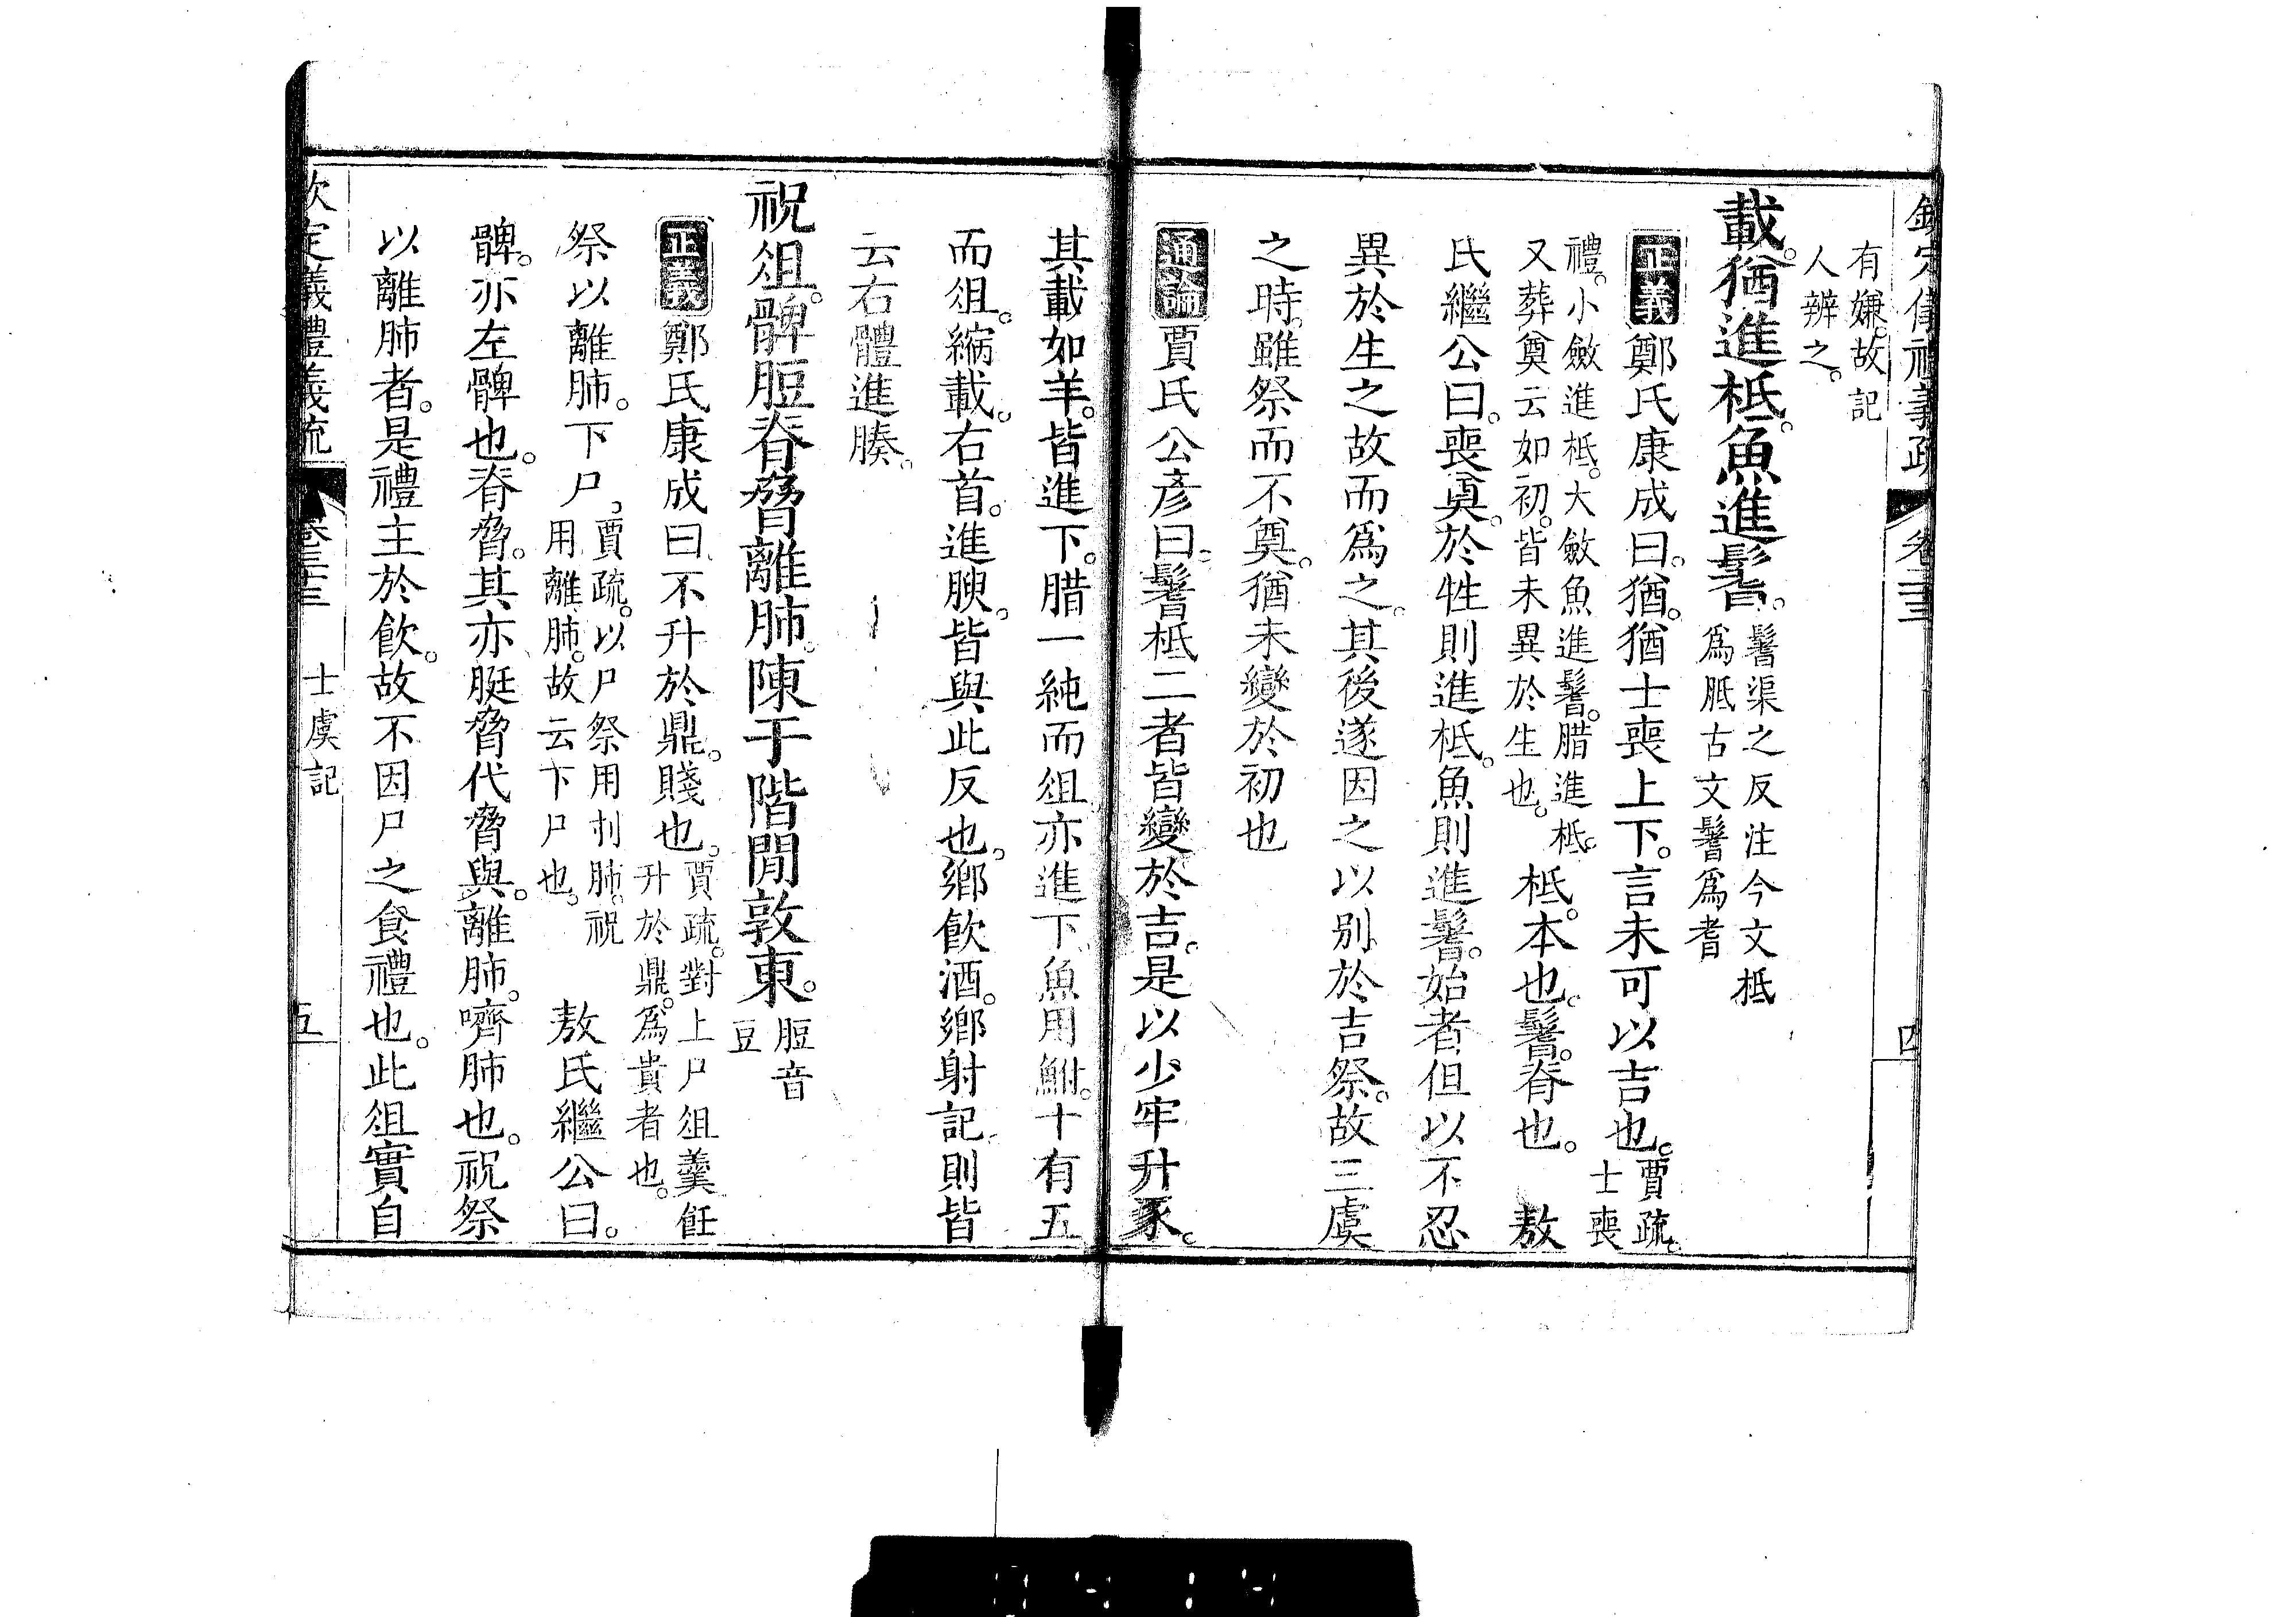 欽定儀禮義疏 卷三十三 四
有嫌。故記
人辨之。
載。猶進柢。魚進鬐。鬐渠之反注今文柢
爲胝古文鬐爲耆
正義 鄭氏康成曰。猶。猶士喪上下。言未可以吉也。賈疏。
士喪
禮。小斂進柢。大斂魚進鬐。腊進柢。
又葬奠云如初。皆未異於生也。 柢。本也。鬐。脊也。 敖
氏繼公曰。喪奠。於牲則進柢。魚則進鬐。始者但以不忍
異於生之故而爲之。其後遂因之以别於吉祭。故三虞
之時。雖祭而不奠。猶未變於初也
通論 賈氏公彦曰。鬐柢二者皆變於吉。是以少牢升豕。
其載如羊。皆進下。腊一純而俎。亦進下。魚用鮒。十有五
而俎。縮載。右首。進腴。皆與此反也。鄉飲酒。鄉射記。則皆
云右體進腠。
祝俎。髀脰脊脅離肺。陳于階閒敦東。脰音
豆
正義 鄭氏康成曰。不升於鼎。賤也。賈疏。對上尸俎羹飪
升於鼎。爲貴者也。
祭以離肺。下尸。賈疏。以尸祭用刌肺。祝
用離肺。故云下尸也。 敖氏繼公曰。
髀。亦左髀也。脊脅。其亦脡脅代脅與。離肺。嚌肺也。祝祭
以離肺者。是禮主於飲。故不因尸之食禮也。此俎實自
欽定儀禮義疏 卷三十三 士虞記 五